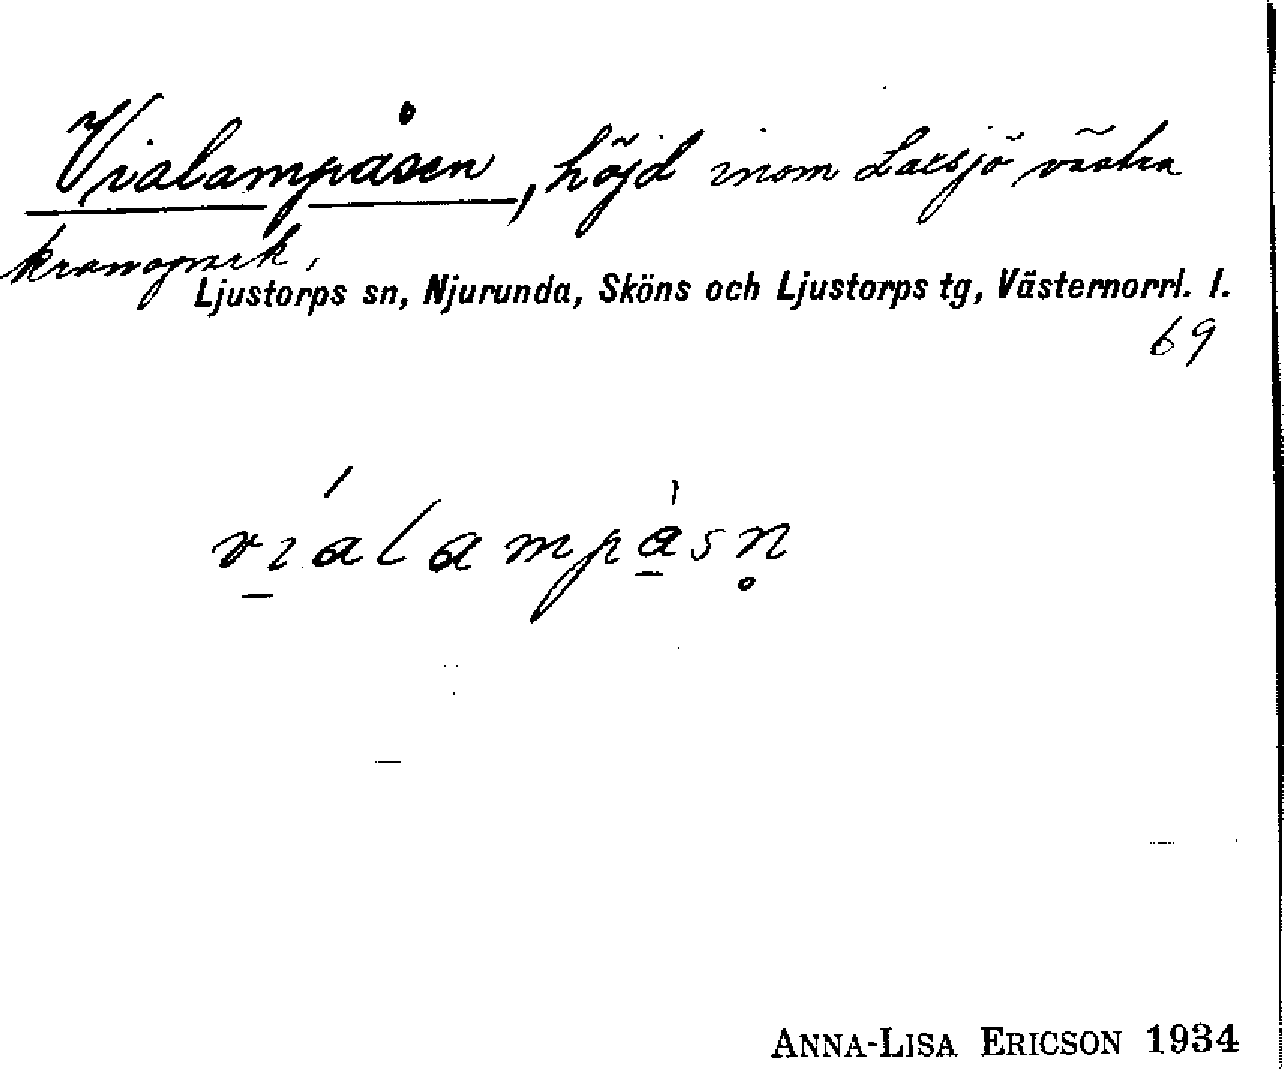 Vialampåsen, höjd inom Laxsjö västra
kronopark,
Ljustorps sn, Njurunda, Sköns och Ljustorps tg, Västernorrl. l.
69
víalampàsn̥
ANNA-LISA ERICSON 1934